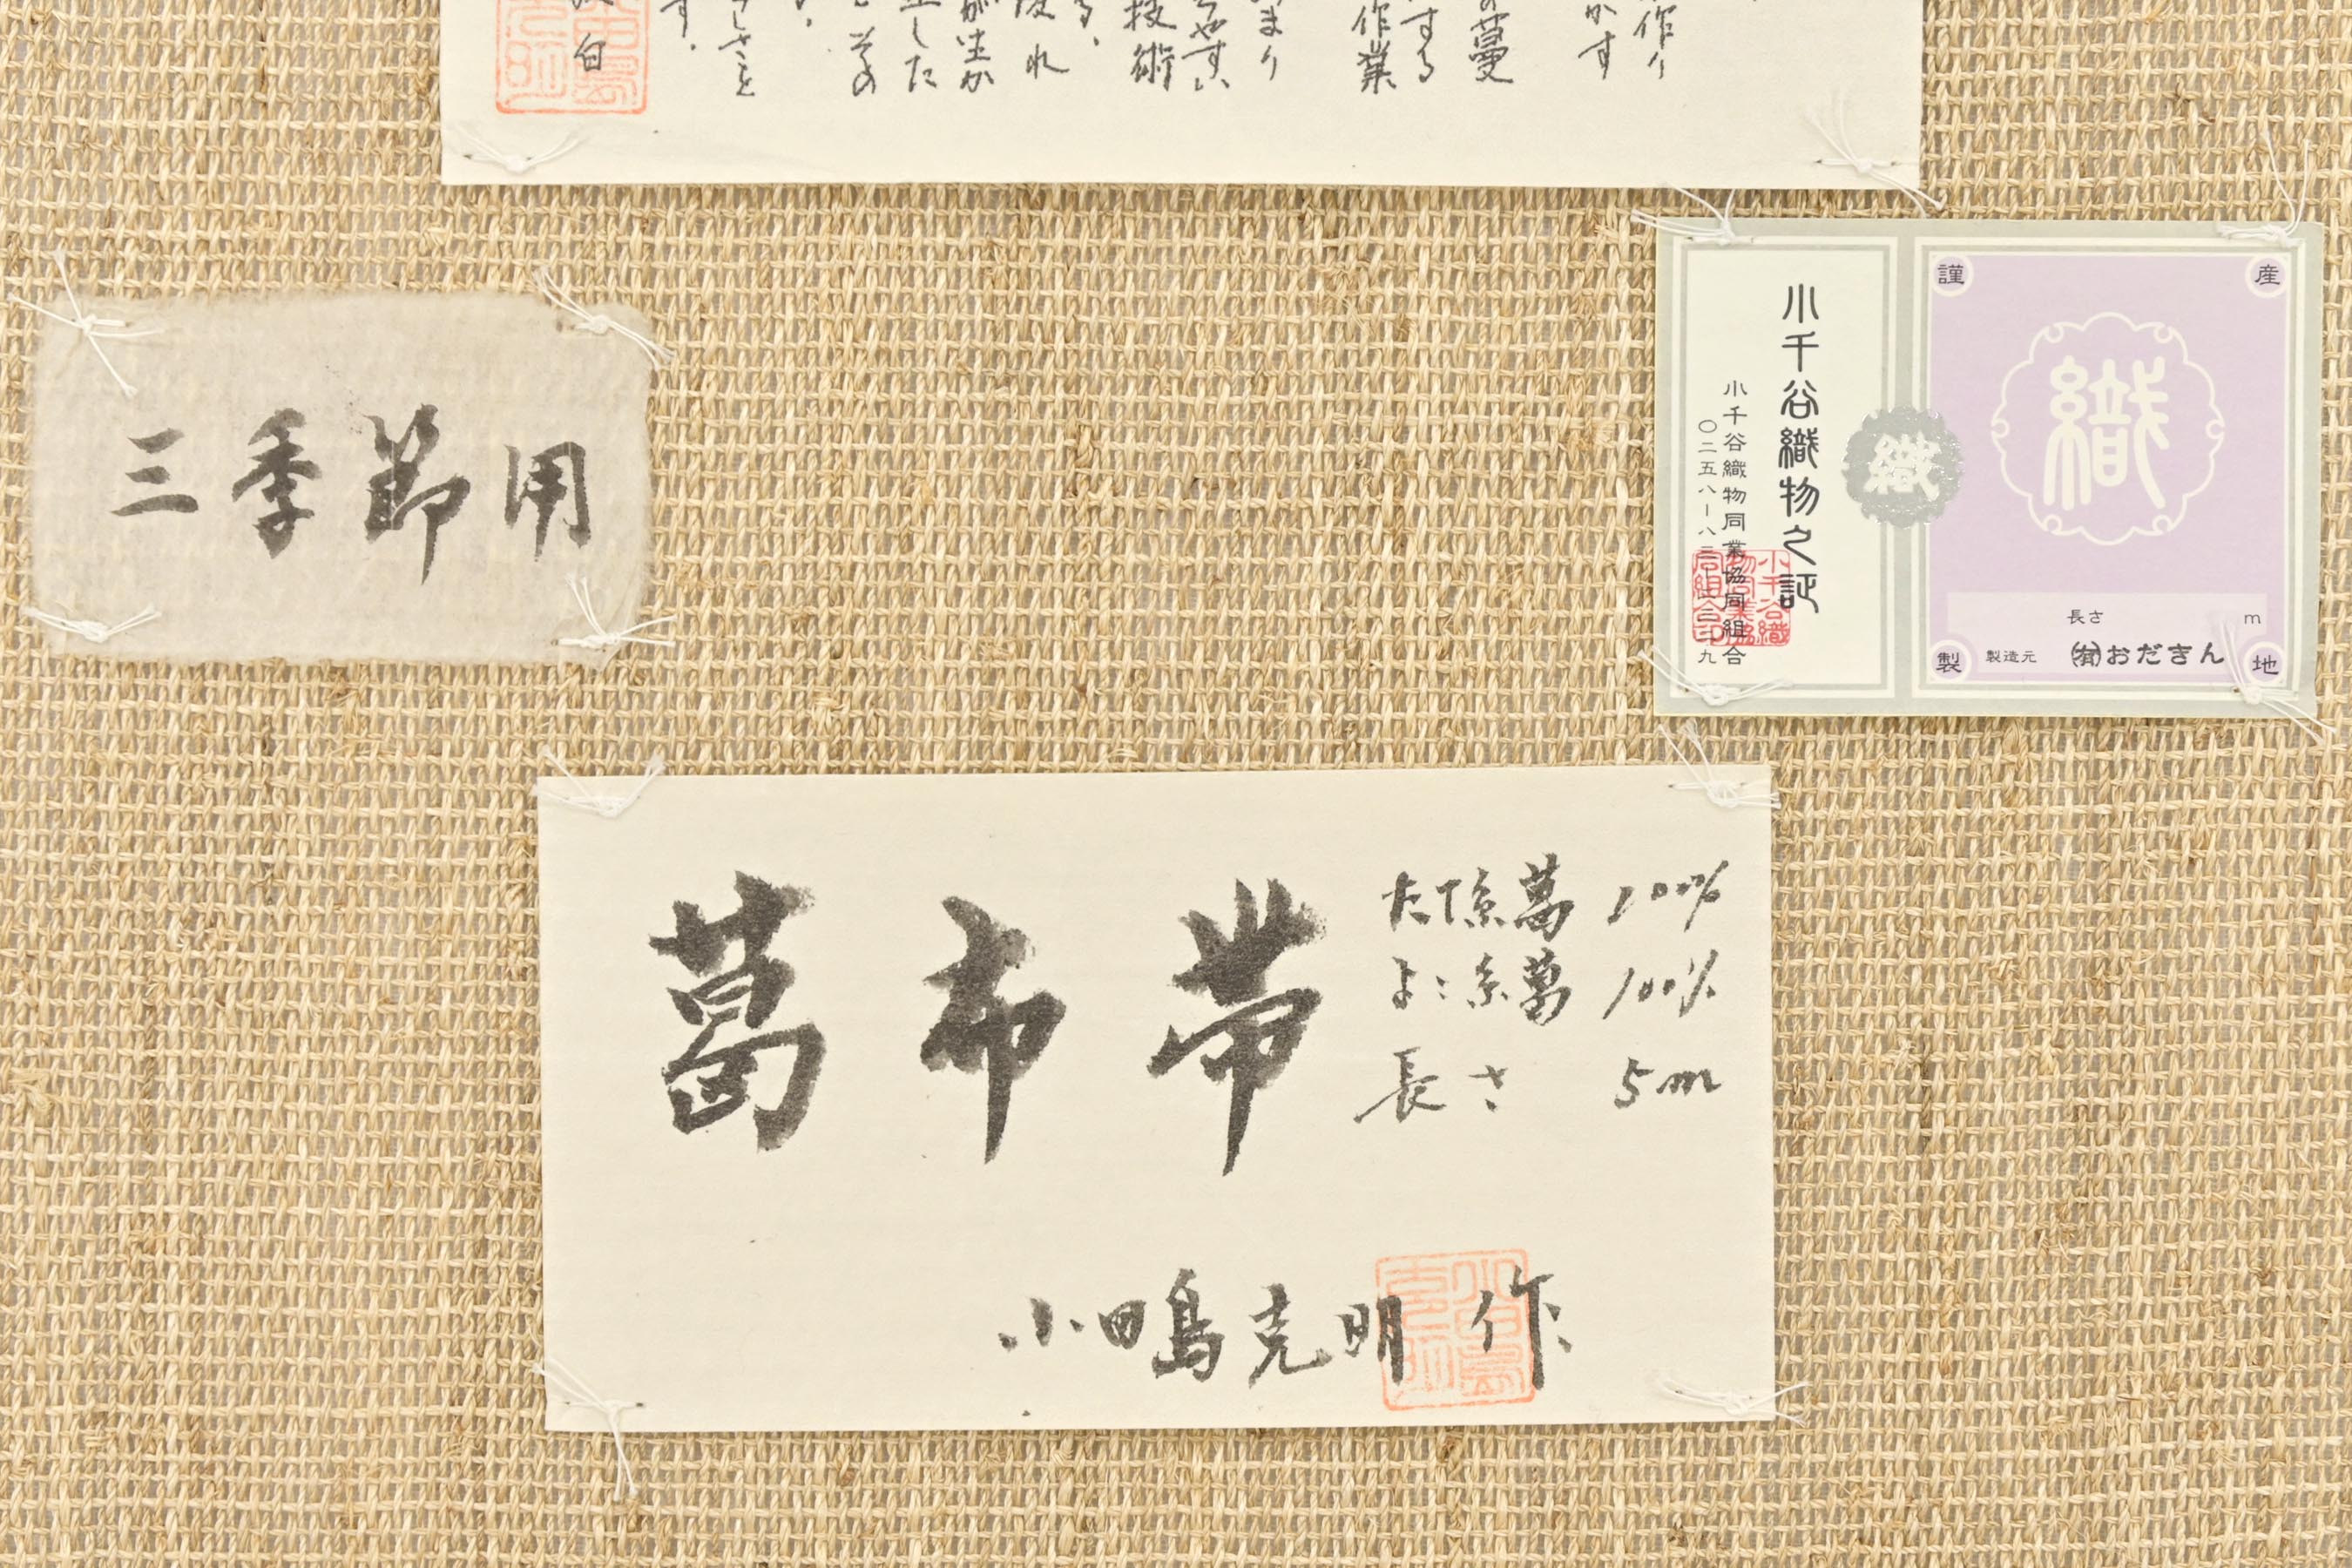 作り
かす
の蔓
する
作業
まり
やすい
技術
る、
れ
が生か
した
その
さを
す。
白
三季節用
小千谷織物之証
小千谷織物同業協同組合
織
謹 産
織
長さ m
製造元 ㈲おだきん
製 地
葛布帯
たて糸葛 100%
よこ糸葛 100%
長さ 5m
小田島克明 作